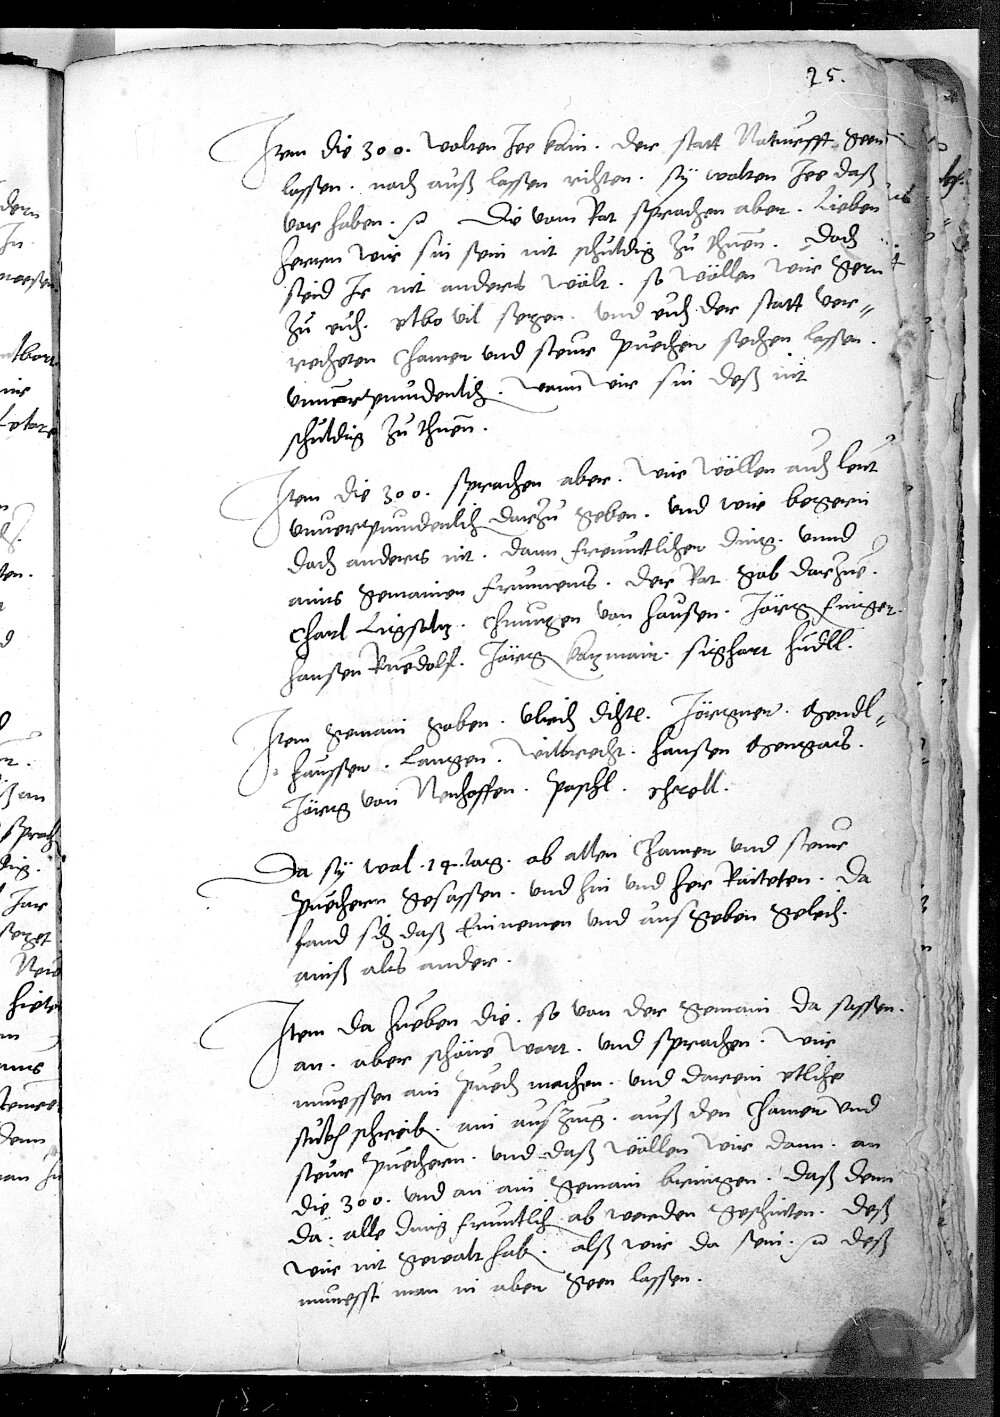 25.
Item die 300. wolten Jee kain. der statt Notturfft geen
lassen. noch auß lassen richten. sy wolten Jee daß
vor haben. Die vom Rat sprachen aber. Lieben
herren wir sin sein nit schuldig zu thuen. Doch
seid Jr nit anderes wölt. so wöllen wir gern
zu euch. etbo vil setzen. und euch der statt ver„
recheten Chamer und steur puecher sechen lassen.
unuerpundenlich. wann wir sin deß nit
schuldig zu thuen.
Item die 300. sprachen aber. wir wöllen auch leut
unuerpundenlich darzu geben. und wir begeren
doch anderes nit. dann freuntlicher ding. unnd
ains gemainen frummens. der Rat gab darzue.
Charl Ligsaltz. Chunrgen von Hausen. Jörg Finger.
Hansen Ruedolf. Jörg Katzmair. Sighart Hudll.
Item gemain gaben. Ulrich Dichtl. Jörgner. Gendl„
haussen. Langen. Wilbrecht. Hansen Gengars.
Jörg von Neuhoffen. Poschl. Schroll.
Da sy wol .14. tag. ob allen Chamer und steur
puechern gesassen. und hin und her Raiteten. Da
fand sich daß Einnemen und ausgeben geleich.
ains als ander.
Item da hueben die. so von der gemain da sassen.
an. aber schöne wort. und sprachen. wir
muessen ain puech machen. und darein etliche
stuckh schreib. ain auszug. auß den Chamer und
steur puechern. und daß wöllen wir dann. an
die 300. und an ain gemain bringen. daß denn
da. alle ding fruntlich ab werden geschniten. deß
wir nit gewalt hab. alß wir da sein. deß
muesst man in aber geen lassen.